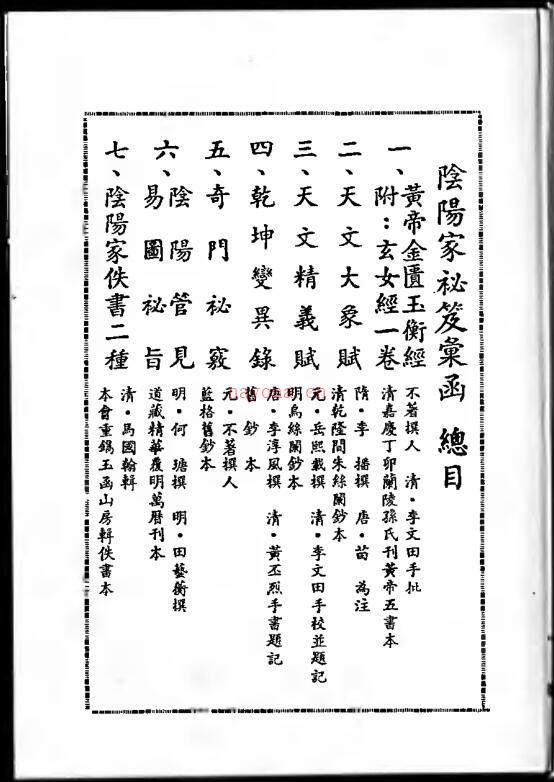 陰陽家祕笈彙函 總目
一、黃帝金匱玉衡經
附：玄女經一卷
不著撰人 清・李文田手批
清嘉慶丁卯蘭陵孫氏刊黃帝五書本
二、天文大象賦
隋・李 播撰 唐・苗 為注
清乾隆間朱絲闌鈔本
三、天文精義賦
元・岳熙載撰 清・李文田手校並題記
明烏絲闌鈔本
四、乾坤變異錄
唐・李淳風撰 清・黃丕烈手書題記
舊鈔本
五、奇門祕竅
元・不著撰人
藍格舊鈔本
六、陰陽管見
易圖祕旨
明・何 瑭撰 明・田藝衡撰
道藏精華覆明萬曆刊本
七、陰陽家佚書二種
清・馬國翰輯
本會重鐫玉函山房輯佚書本